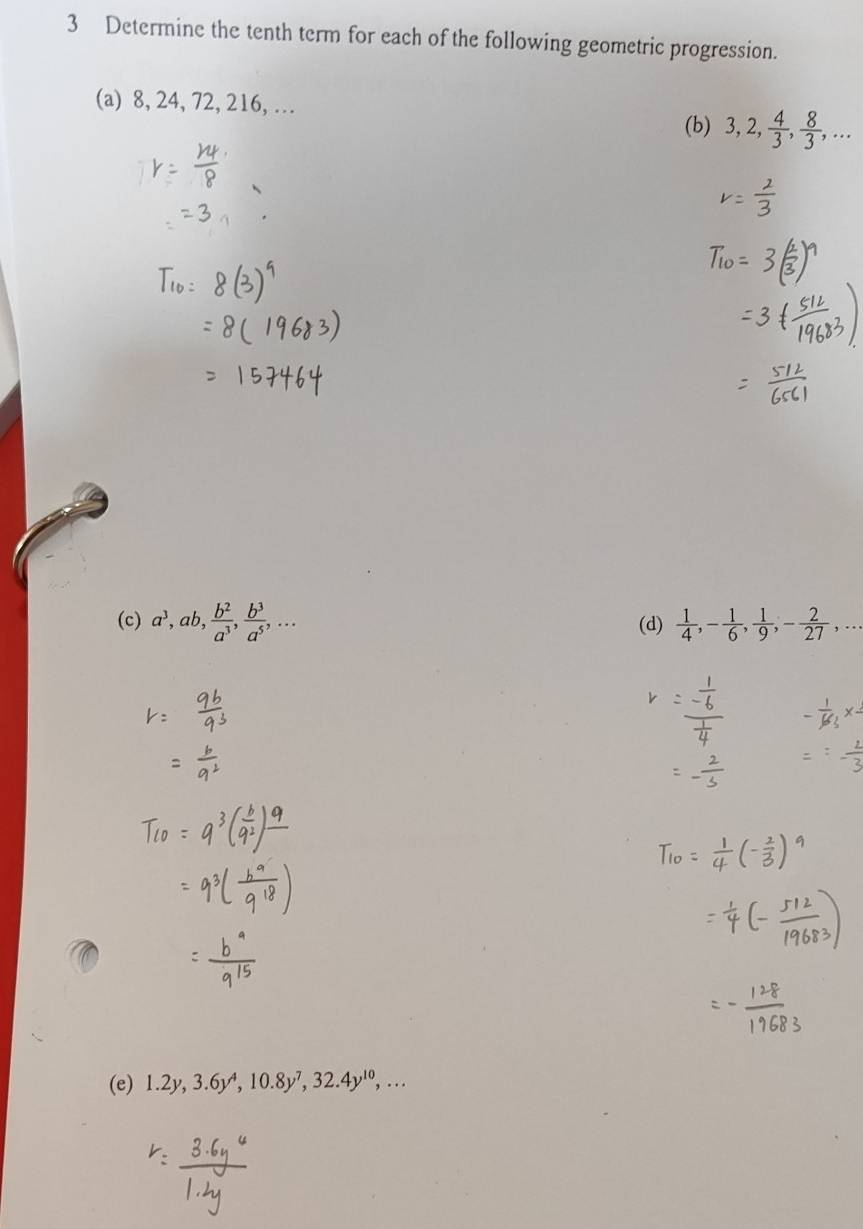 3 Determine the tenth term for each of the following geometric progression.
(a) 8, 24, 72, 216, ...
r = 24/8
= 3
T₁₀ = 8(3)⁹
= 8(19683)
= 157464
(b) 3, 2, 4/3, 8/3, ...
r = 2/3
T₁₀ = 3(2/3)⁹
= 3(512/19683)
= 512/6561
(c) a³, ab, b²/a³, b³/a⁵, ...
r = ab/a³
= b/a²
T₁₀ = a³(b/a²)⁹
= a³(b⁹/a¹⁸)
= b⁹/a¹⁵
(d) 1/4, -1/6, 1/9, -2/27, ...
r = (-1/6)/(1/4)
= -2/3
-1/6₃ ×
= -2/3
T₁₀ = 1/4(-2/3)⁹
= 1/4(-512/19683)
= -128/19683
(e) 1.2y, 3.6y⁴, 10.8y⁷, 32.4y¹⁰, ...
r = 3.6y⁴/1.2y